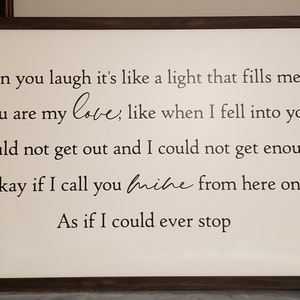 n you laugh it's like a light that fills me
u are my love; like when I fell into yo
uld not get out and I could not get enou
kay if I call you mine from here on
As if I could ever stop